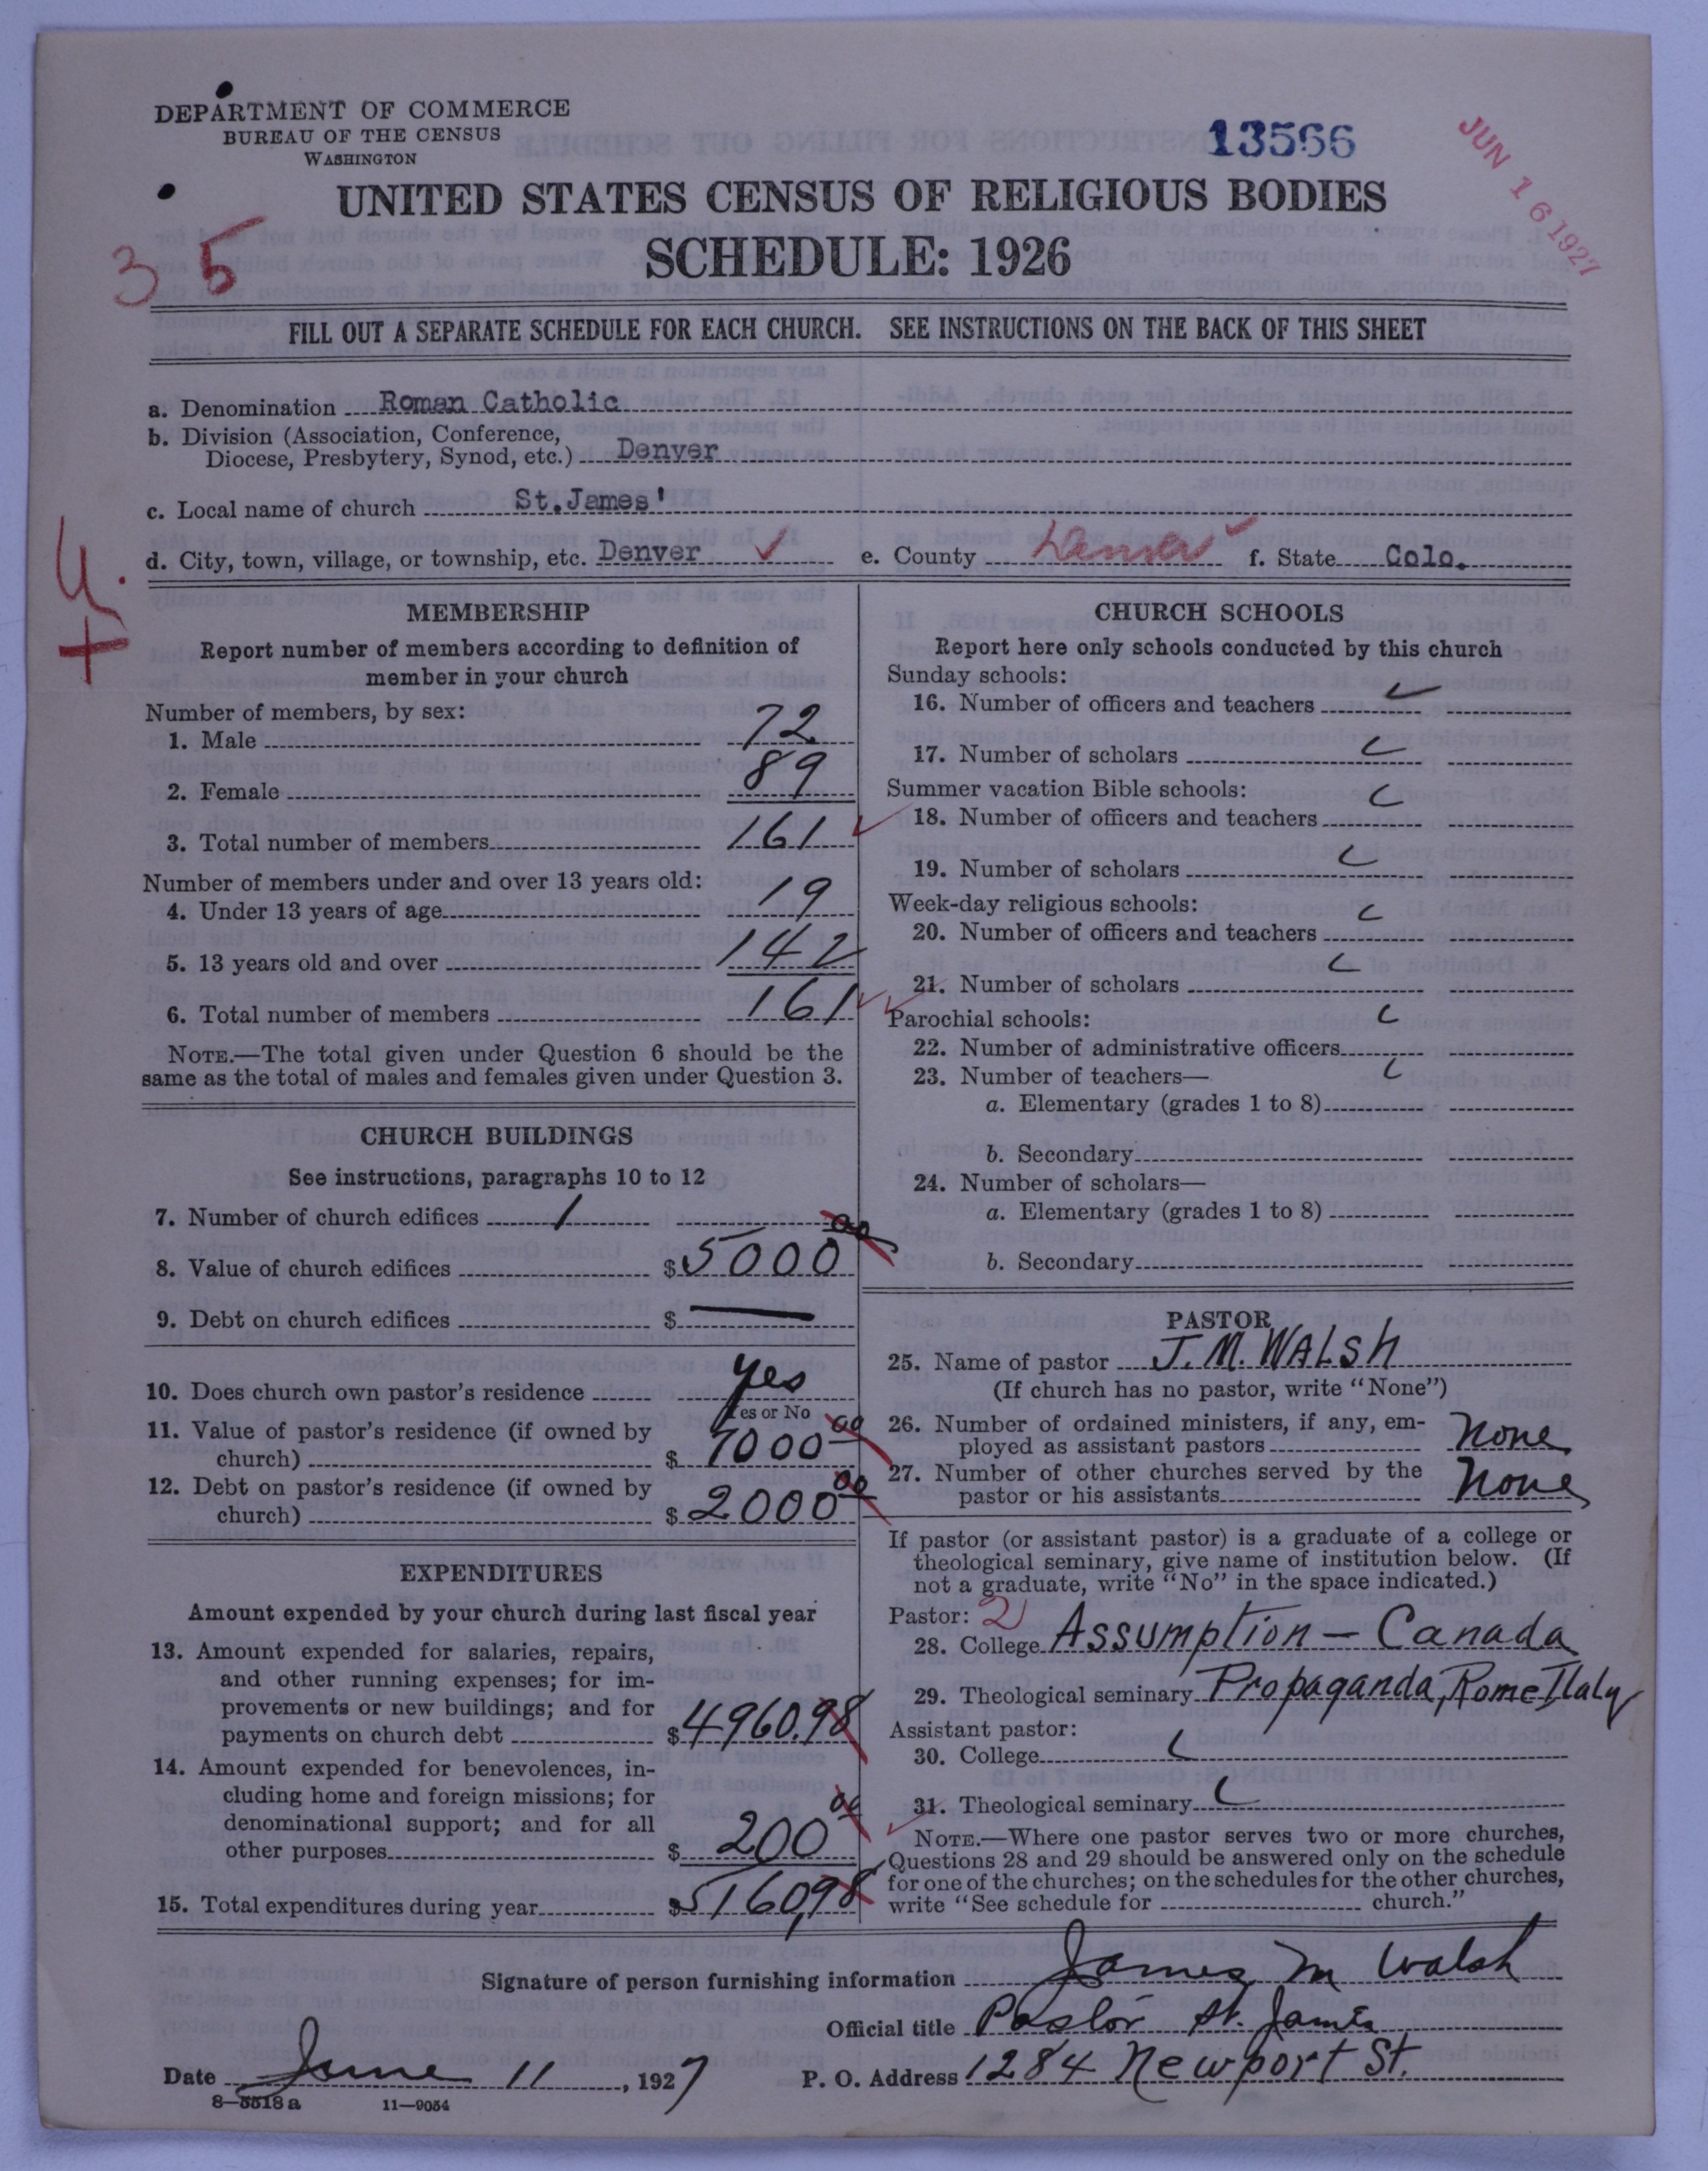 DEPARTMENT OF COMMERCE
BUREAU OF THE CENSUS
WASHINGTON
13566
JUN 16 1927
UNITED STATES CENSUS OF RELIGIOUS BODIES
SCHEDULE: 1926
35
FILL OUT A SEPARATE SCHEDULE FOR EACH CHURCH. SEE INSTRUCTIONS ON THE BACK OF THIS SHEET
a. Denomination Roman Catholic
b. Division (Association, Conference,
Diocese, Presbytery, Synod, etc.) Denver
c. Local name of church St.James'
d. City, town, village, or township, etc. Denver ✓ e. County Denver ✓ f. State Colo.
MEMBERSHIP
Report number of members according to definition of
member in your church
Number of members, by sex:
1. Male 72
2. Female 89
3. Total number of members 161 ✓
Number of members under and over 13 years old:
4. Under 13 years of age 19
5. 13 years old and over 142
6. Total number of members 161 ✓
NOTE.—The total given under Question 6 should be the
same as the total of males and females given under Question 3.
CHURCH BUILDINGS
See instructions, paragraphs 10 to 12
7. Number of church edifices 1
8. Value of church edifices $5000 00
9. Debt on church edifices $ —
10. Does church own pastor's residence Yes
Yes or No
11. Value of pastor's residence (if owned by
church) $ 7000 00
12. Debt on pastor's residence (if owned by
church) $ 2000 00
EXPENDITURES
Amount expended by your church during last fiscal year
13. Amount expended for salaries, repairs,
and other running expenses; for im-
provements or new buildings; and for
payments on church debt $4960.98
14. Amount expended for benevolences, in-
cluding home and foreign missions; for
denominational support; and for all
other purposes $ 200 00
15. Total expenditures during year $5160.98
CHURCH SCHOOLS
Report here only schools conducted by this church
Sunday schools:
16. Number of officers and teachers
17. Number of scholars
Summer vacation Bible schools:
18. Number of officers and teachers
19. Number of scholars
Week-day religious schools:
20. Number of officers and teachers
21. Number of scholars
Parochial schools:
22. Number of administrative officers
23. Number of teachers—
a. Elementary (grades 1 to 8)
b. Secondary
24. Number of scholars—
a. Elementary (grades 1 to 8)
b. Secondary
PASTOR
25. Name of pastor J. M. WALSH
(If church has no pastor, write "None")
26. Number of ordained ministers, if any, em-
ployed as assistant pastors None
27. Number of other churches served by the
pastor or his assistants None
If pastor (or assistant pastor) is a graduate of a college or
theological seminary, give name of institution below. (If
not a graduate, write "No" in the space indicated.)
Pastor: 2
28. College Assumption — Canada
29. Theological seminary Propaganda, Rome Italy
Assistant pastor:
30. College
31. Theological seminary
NOTE.—Where one pastor serves two or more churches,
Questions 28 and 29 should be answered only on the schedule
for one of the churches; on the schedules for the other churches,
write "See schedule for church."
Signature of person furnishing information James M Walsh
Official title Pastor St. James
Date June 11, 1927 P. O. Address 1284 Newport St.
8—5518a 11—9054